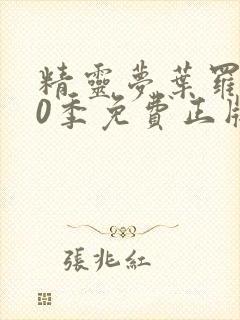 精靈夢葉羅
0季免費正版
張兆紅